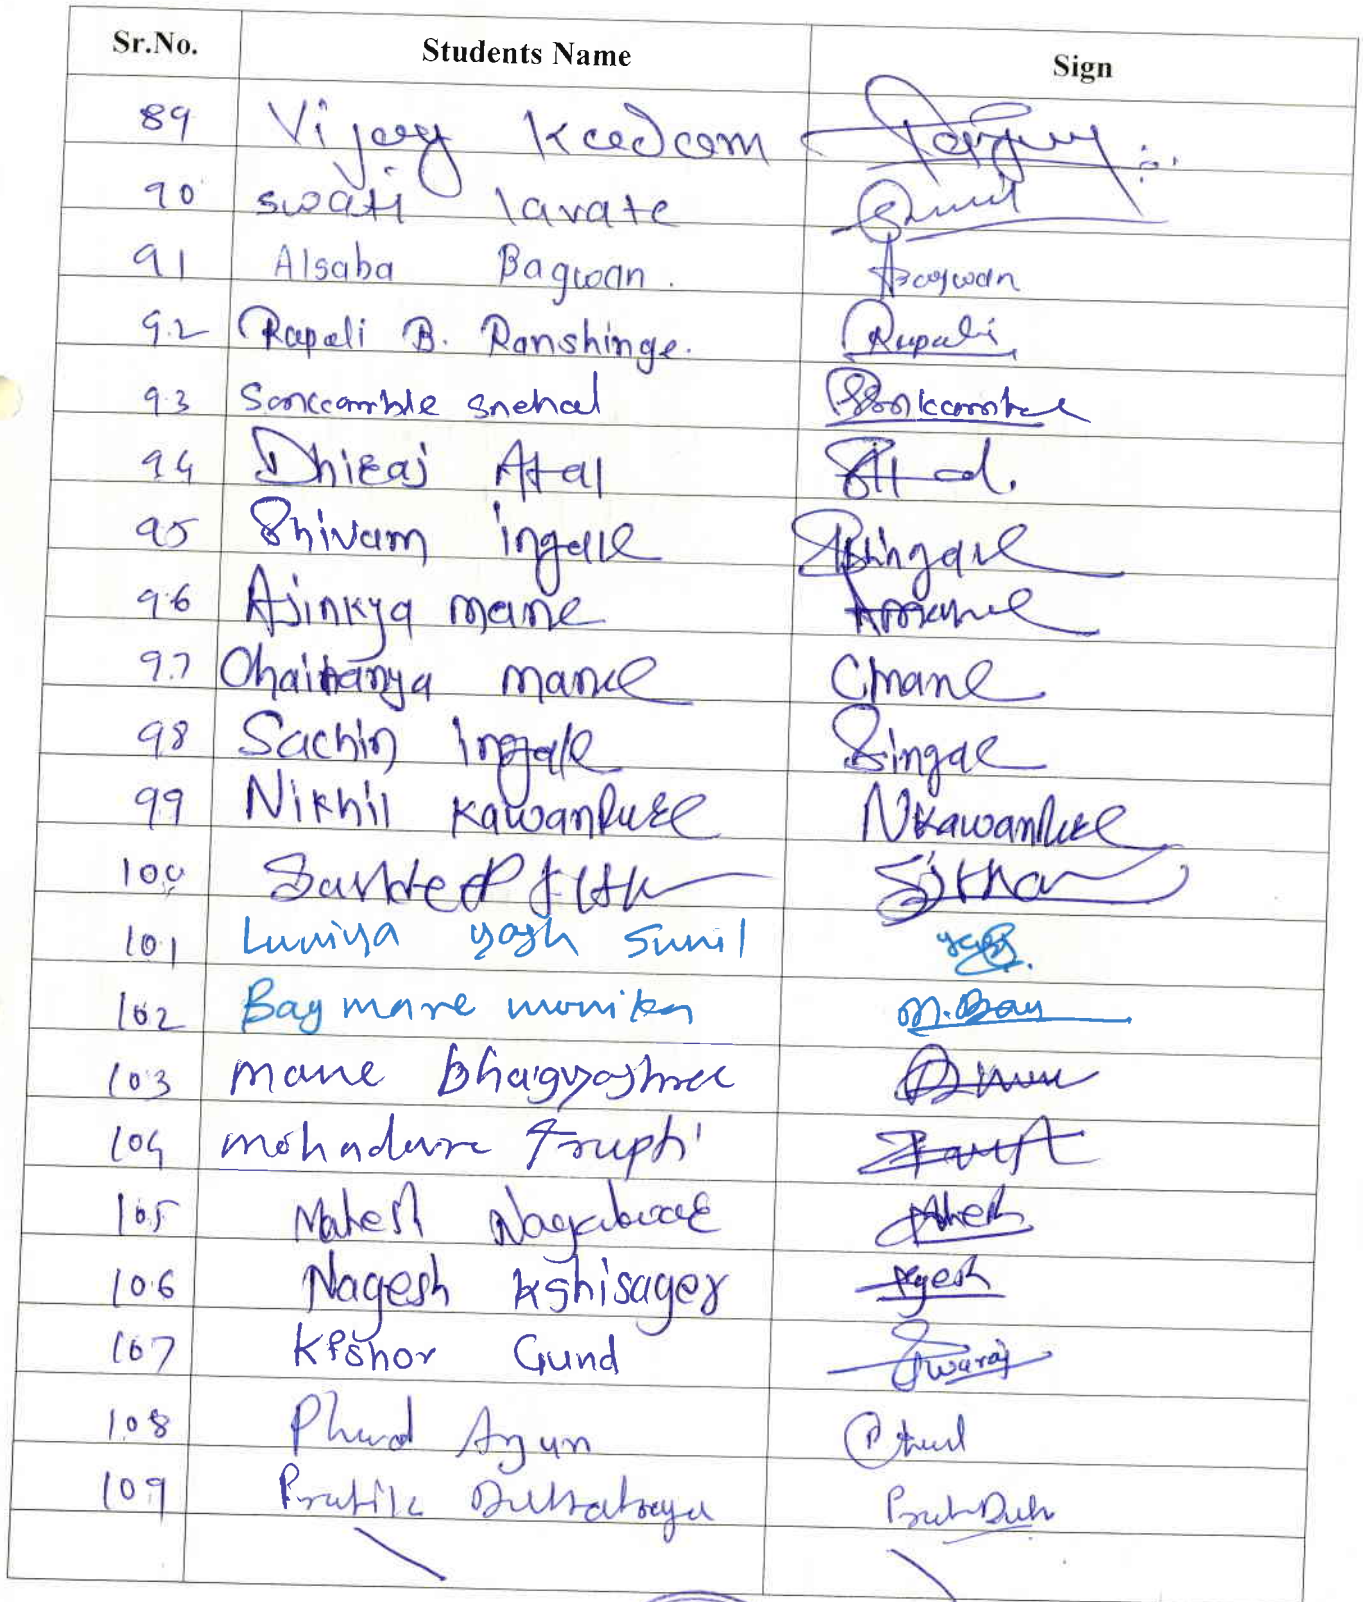 Sr.No. Students Name Sign
89 Vijay Kadam
90 swati lavate
91 Alsaba Bagwan. Bagwan
92 Rupali B. Ranshinge. Rupali
93 Sonkamble snehal Sonkamble
94 Dhiraj Atal
95 Shivam ingale Singale
96 Ajinkya mane Amane
97 Chaitanya mane Cmane
98 Sachin Ingale Singale
99 Nikhil Kawankure NKawankure
100 Sanket
101 Luniya yash Sunil yash
102 Bagmare monika M.Bag
103 mane bhagyashree
104 Trupti
105 Mahesh
106 Nagesh Kshisager
107 Kishor Gund
108 Phad Arjun
109 Pratik Dattatraya